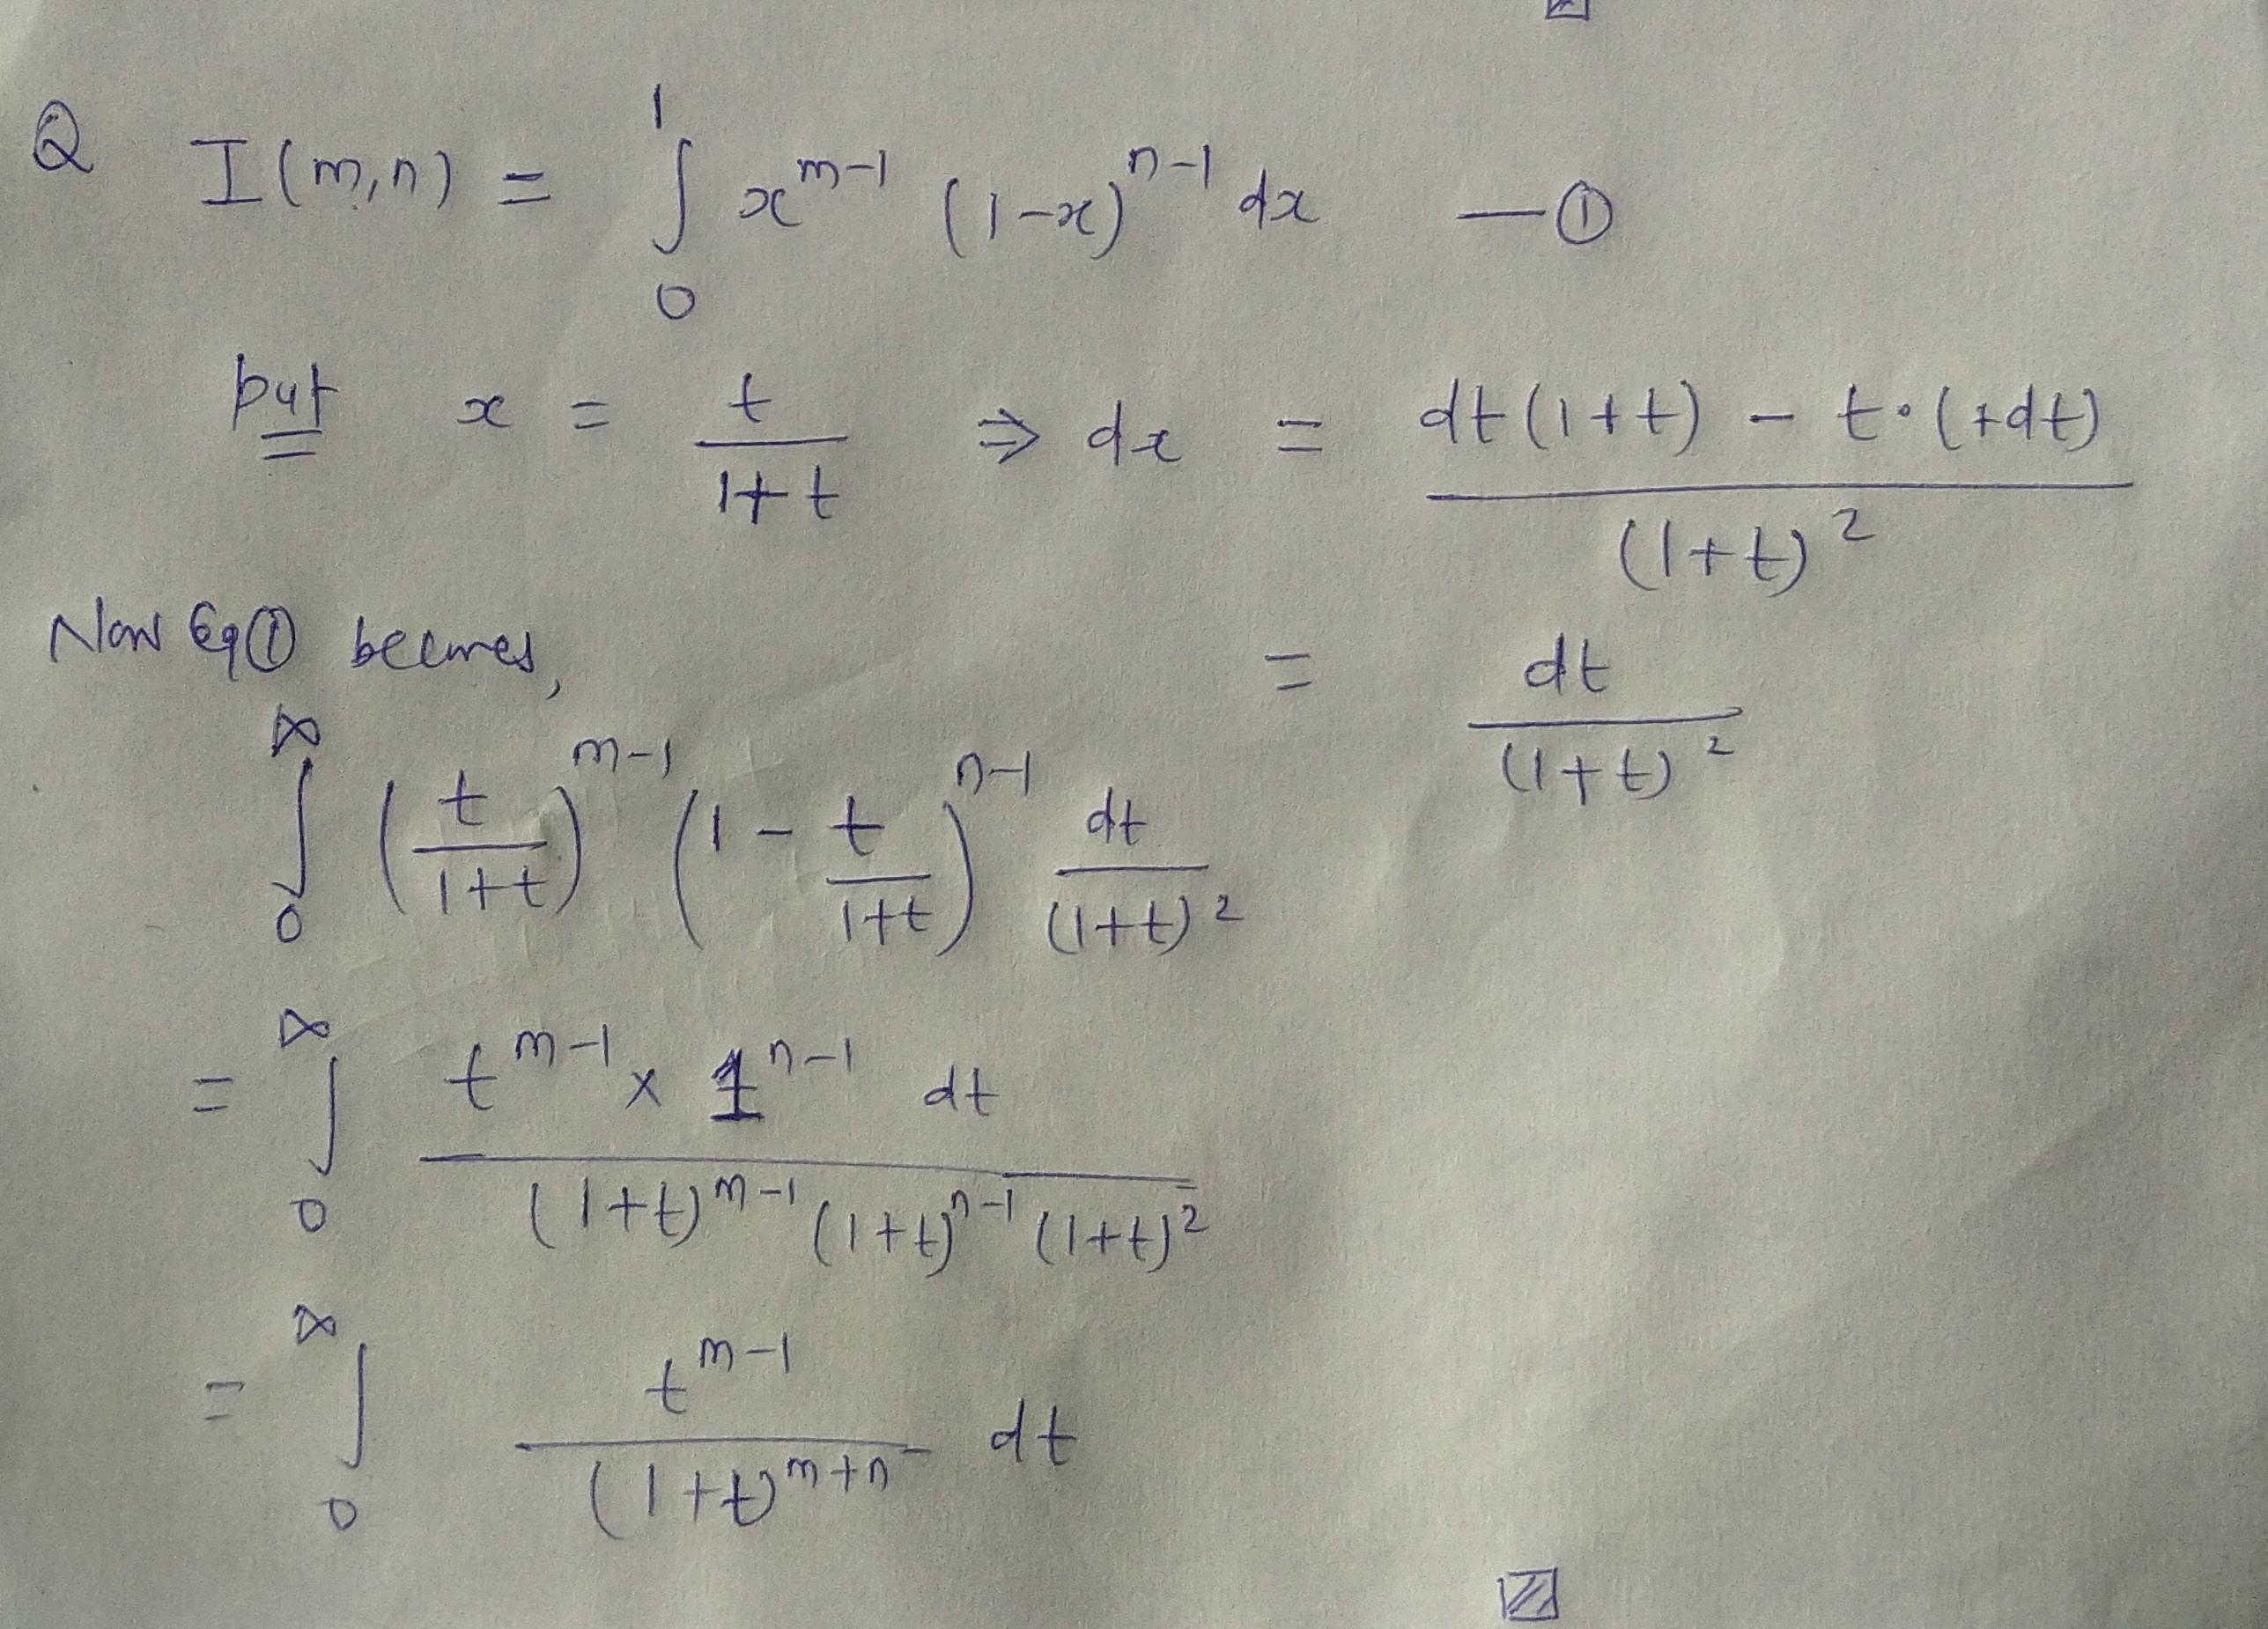 Q I(m,n) = ∫₀¹ x^{m-1} (1-x)^{n-1} dx — ①
put x = t/(1+t) ⇒ dx = (dt(1+t) - t·(+dt))/(1+t)²
Now Eq ① becomes, = dt/(1+t)²
∫₀^∞ (t/(1+t))^{m-1} (1 - t/(1+t))^{n-1} dt/(1+t)²
= ∫₀^∞ (t^{m-1} × 1^{n-1} dt)/((1+t)^{m-1} (1+t)^{n-1} (1+t)²)
= ∫₀^∞ t^{m-1}/(1+t)^{m+n} dt